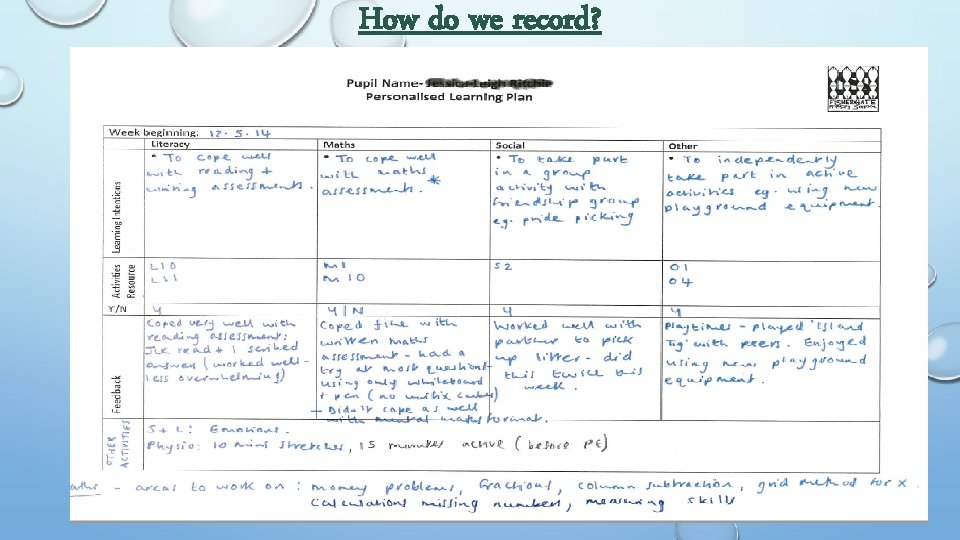 How do we record?
Pupil Name-
Personalised Learning Plan
FISHERGATE
Week beginning: 12.5.14
Literacy
Maths
Social
Other
Learning Intentions
• To cope well
with reading +
writing assessments.
• To cope well
with maths
assessments. *
• To take part
in a group
activity with
friendship group
eg. pride picking
• To independently
take part in active
activities eg. using new
playground equipment.
Activities
Resource
L10
L11
M1
M10
S2
O1
O4
Y/N
Y
Y/N
Y
Y
Feedback
Coped very well with
reading assessment:
read + I scribed
answers (worked well -
less overwhelming)
Coped fine with
written maths
assessment - had a
try at most questions
using only whiteboard
+ pen (no unifix cubes)
- Didn't cope as well
with mental maths format.
Worked well with
partner to pick
up litter - did
this twice this
week.
Playtimes - played 'Island
Tig' with peers. Enjoyed
using new playground
equipment.
OTHER
ACTIVITIES
S + L: Emotions.
Physio: 10 mins stretches, 15 minutes active (before PE)
- areas to work on: money problems, fractions, column subtraction, grid method for x
calculations missing numbers, measuring skills